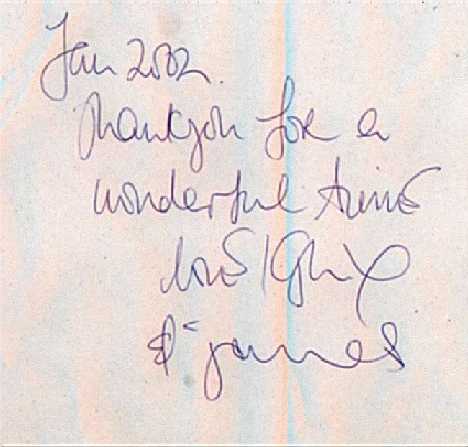 Jan 2002.
Thankyou for a
wonderful time
love
& James